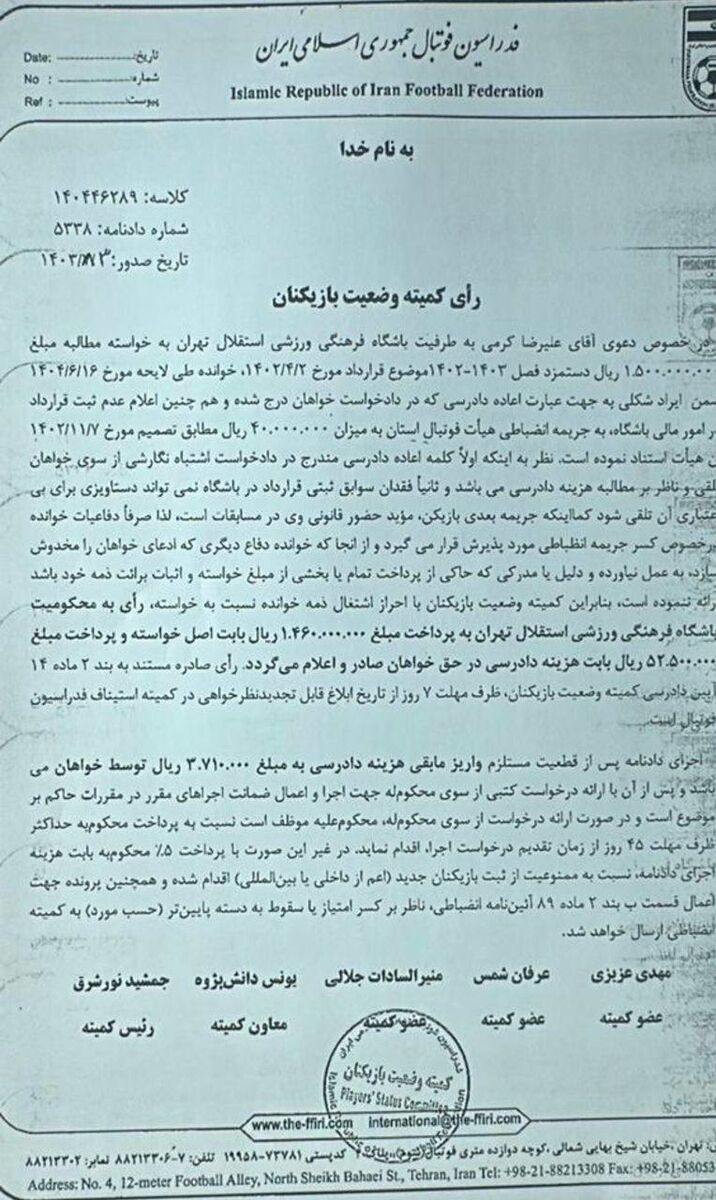 فدراسیون فوتبال جمهوری اسلامی ایران
Islamic Republic of Iran Football Federation
تاریخ: Date:
شماره: No :
پیوست: Ref :
به نام خدا
کلاسه: ۱۴۰۴۴۶۲۸۹
شماره دادنامه: ۵۳۳۸
تاریخ صدور: ۱۴۰۳/
رأی کمیته وضعیت بازیکنان
در خصوص دعوی آقای علیرضا کرمی به طرفیت باشگاه فرهنگی ورزشی استقلال تهران به خواسته مطالبه مبلغ
۱.۵۰۰.۰۰۰.۰۰۰ ریال دستمزد فصل ۱۴۰۳-۱۴۰۲موضوع قرارداد مورخ ۱۴۰۲/۴/۲، خوانده طی لایحه مورخ ۱۴۰۴/۶/۱۶
ضمن ایراد شکلی به جهت عبارت اعاده دادرسی که در دادخواست خواهان درج شده و هم چنین اعلام عدم ثبت قرارداد
در امور مالی باشگاه، به جریمه انضباطی هیأت فوتبال استان به میزان ۴۰.۰۰۰.۰۰۰ ریال مطابق تصمیم مورخ ۱۴۰۲/۱۱/۷
ن هیأت استناد نموده است. نظر به اینکه اولاً کلمه اعاده دادرسی مندرج در دادخواست اشتباه نگارشی از سوی خواهان
تلقی و ناظر بر مطالبه هزینه دادرسی می باشد و ثانیاً فقدان سوابق ثبتی قرارداد در باشگاه نمی تواند دستاویزی برای بی
عتباری آن تلقی شود کمااینکه جریمه بعدی بازیکن، مؤید حضور قانونی وی در مسابقات است، لذا صرفاً دفاعیات خوانده
رخصوص کسر جریمه انظباطی مورد پذیرش قرار می گیرد و از انجا که خوانده دفاع دیگری که ادعای خواهان را مخدوش
سازد، به عمل نیاورده و دلیل یا مدرکی که حاکی از پرداخت تمام یا بخشی از مبلغ خواسته و اثبات برائت ذمه خود باشد
رائه ننموده است، بنابراین کمیته وضعیت بازیکنان با احراز اشتغال ذمه خوانده نسبت به خواسته، رأی به محکومیت
باشگاه فرهنگی ورزشی استقلال تهران به پرداخت مبلغ ۱.۴۶۰.۰۰۰.۰۰۰ ریال بابت اصل خواسته و پرداخت مبلغ
۵۲.۵۰۰.۰۰۰ ریال بابت هزینه دادرسی در حق خواهان صادر و اعلام می‌گردد. رأی صادره مستند به بند ۲ ماده ۱۴
آیین دادرسی کمیته وضعیت بازیکنان، ظرف مهلت ۷ روز از تاریخ ابلاغ قابل تجدیدنظرخواهی در کمیته استیناف فدراسیون
فوتبال است.
اجرای دادنامه پس از قطعیت مستلزم واریز مابقی هزینه دادرسی به مبلغ ۳.۷۱۰.۰۰۰ ریال توسط خواهان می
باشد و پس از آن با ارائه درخواست کتبی از سوی محکوم‌له جهت اجرا و اعمال ضمانت اجراهای مقرر در مقررات حاکم بر
موضوع است و در صورت ارائه درخواست از سوی محکوم‌له، محکوم‌علیه موظف است نسبت به پرداخت محکوم‌به حداکثر
ظرف مهلت ۴۵ روز از زمان تقدیم درخواست اجرا، اقدام نماید. در غیر این صورت با پرداخت ۵٪ محکوم‌به بابت هزینه
اجرای دادنامه، نسبت به ممنوعیت از ثبت بازیکنان جدید (اعم از داخلی یا بین‌المللی) اقدام شده و همچنین پرونده جهت
اعمال قسمت ب بند ۲ ماده ۸۹ آئین‌نامه انضباطی، ناظر بر کسر امتیاز یا سقوط به دسته پایین‌تر (حسب مورد) به کمیته
انضباطی ارسال خواهد شد.
مهدی عزیزی عرفان شمس منیرالسادات جلالی یونس دانش‌پژوه جمشید نورشرق
عضو کمیته عضو کمیته عضو کمیته معاون کمیته رئیس کمیته
کمیته وضعیت بازیکنان
Players' Status Committee
www.the-ffiri.com international@the-ffiri.com
تهران، خیابان شیخ بهایی شمالی، کوچه دوازده متری فوتبال کدپستی ۷۳۷۸۱-۱۹۹۵۸ تلفن: ۷-۸۸۲۱۳۳۰۶ نمابر: ۸۸۲۱۳۳۰۲
Address: No. 4, 12-meter Football Alley, North Sheikh Bahaei St., Tehran, Iran Tel: +98-21-88213308 Fax: +98-21-88053